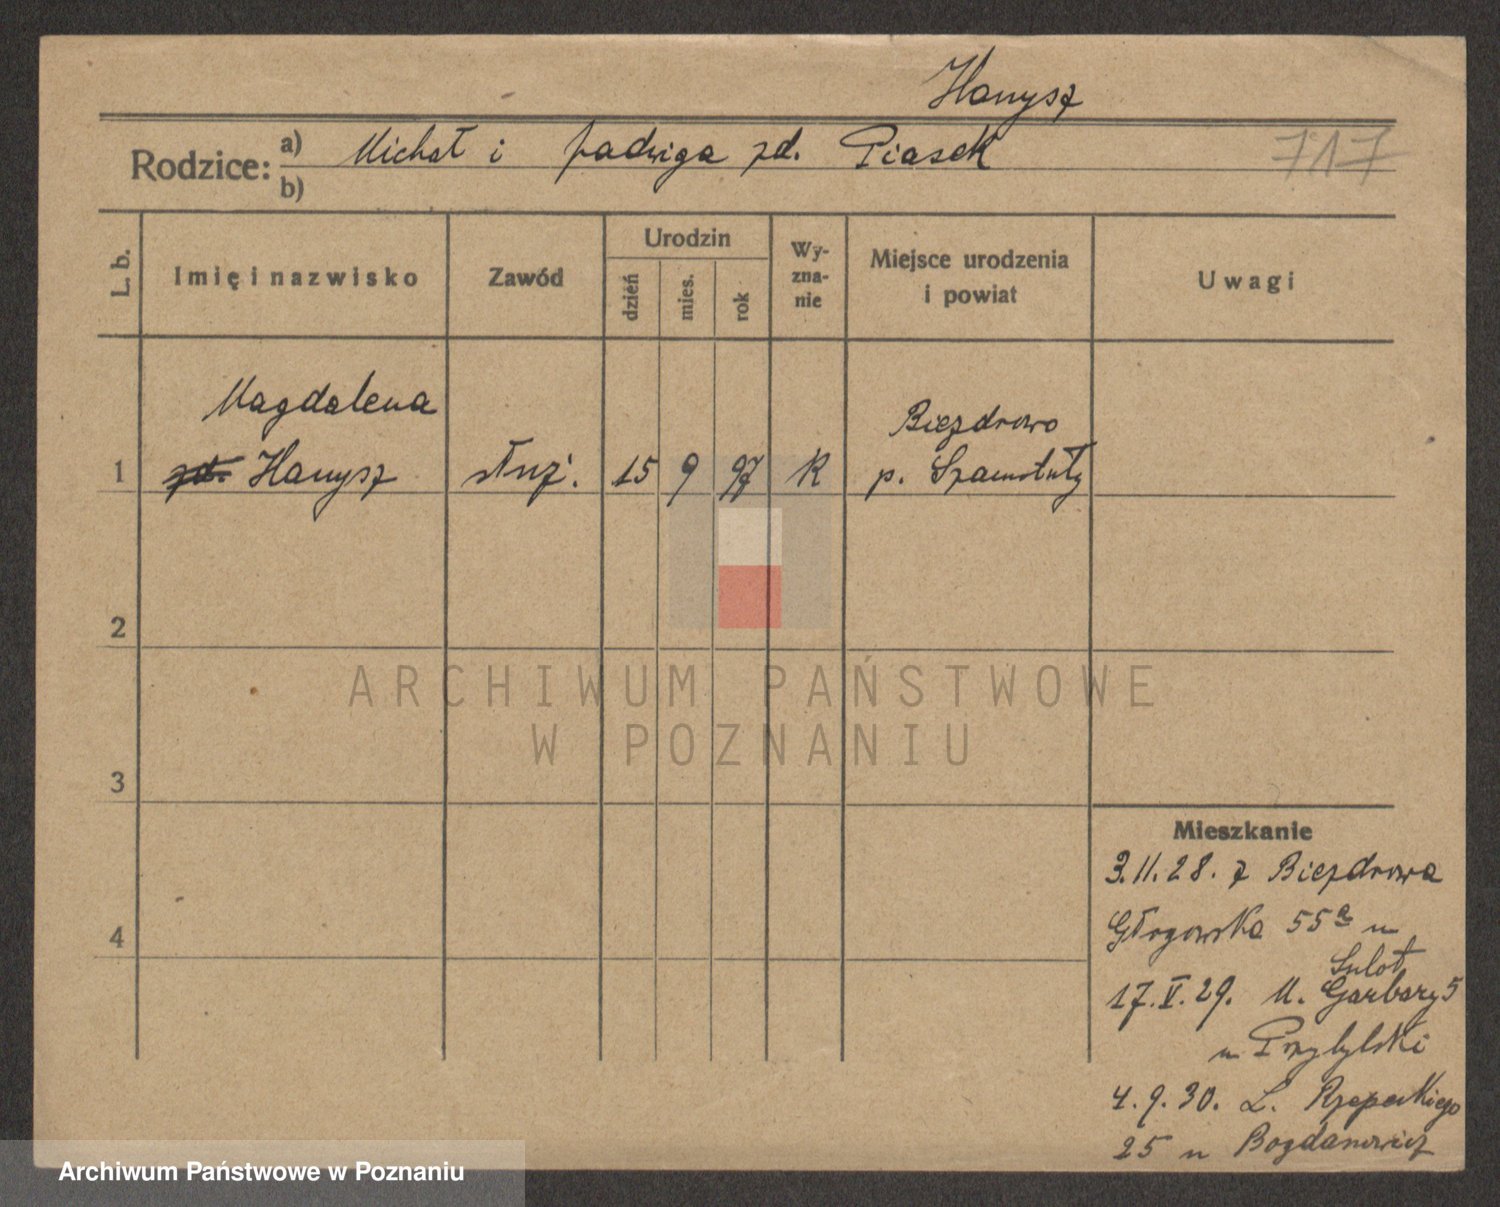 Hanysz
Rodzice: a) Michał i Jadwiga zd. Piasek
717
b)
L. b.
Imię i nazwisko
Zawód
Urodzin
dzień
mies.
rok
Wy-
zna-
nie
Miejsce urodzenia
i powiat
Uwagi
Magdalena
Biezdrowo
1 zd. Hanysz służ. 15 9 97 K p. Szamotuły
2
ARCHIWUM PAŃSTWOWE
W POZNANIU
3
Mieszkanie
3.11.28. z Biezdrowa
4
Głogowska 55a u
Sulot
17.V.29. M. Garbary 5
u Przybylski
4.9.30. L. Rzepeckiego
25 u Bogdanowicz
Archiwum Państwowe w Poznaniu